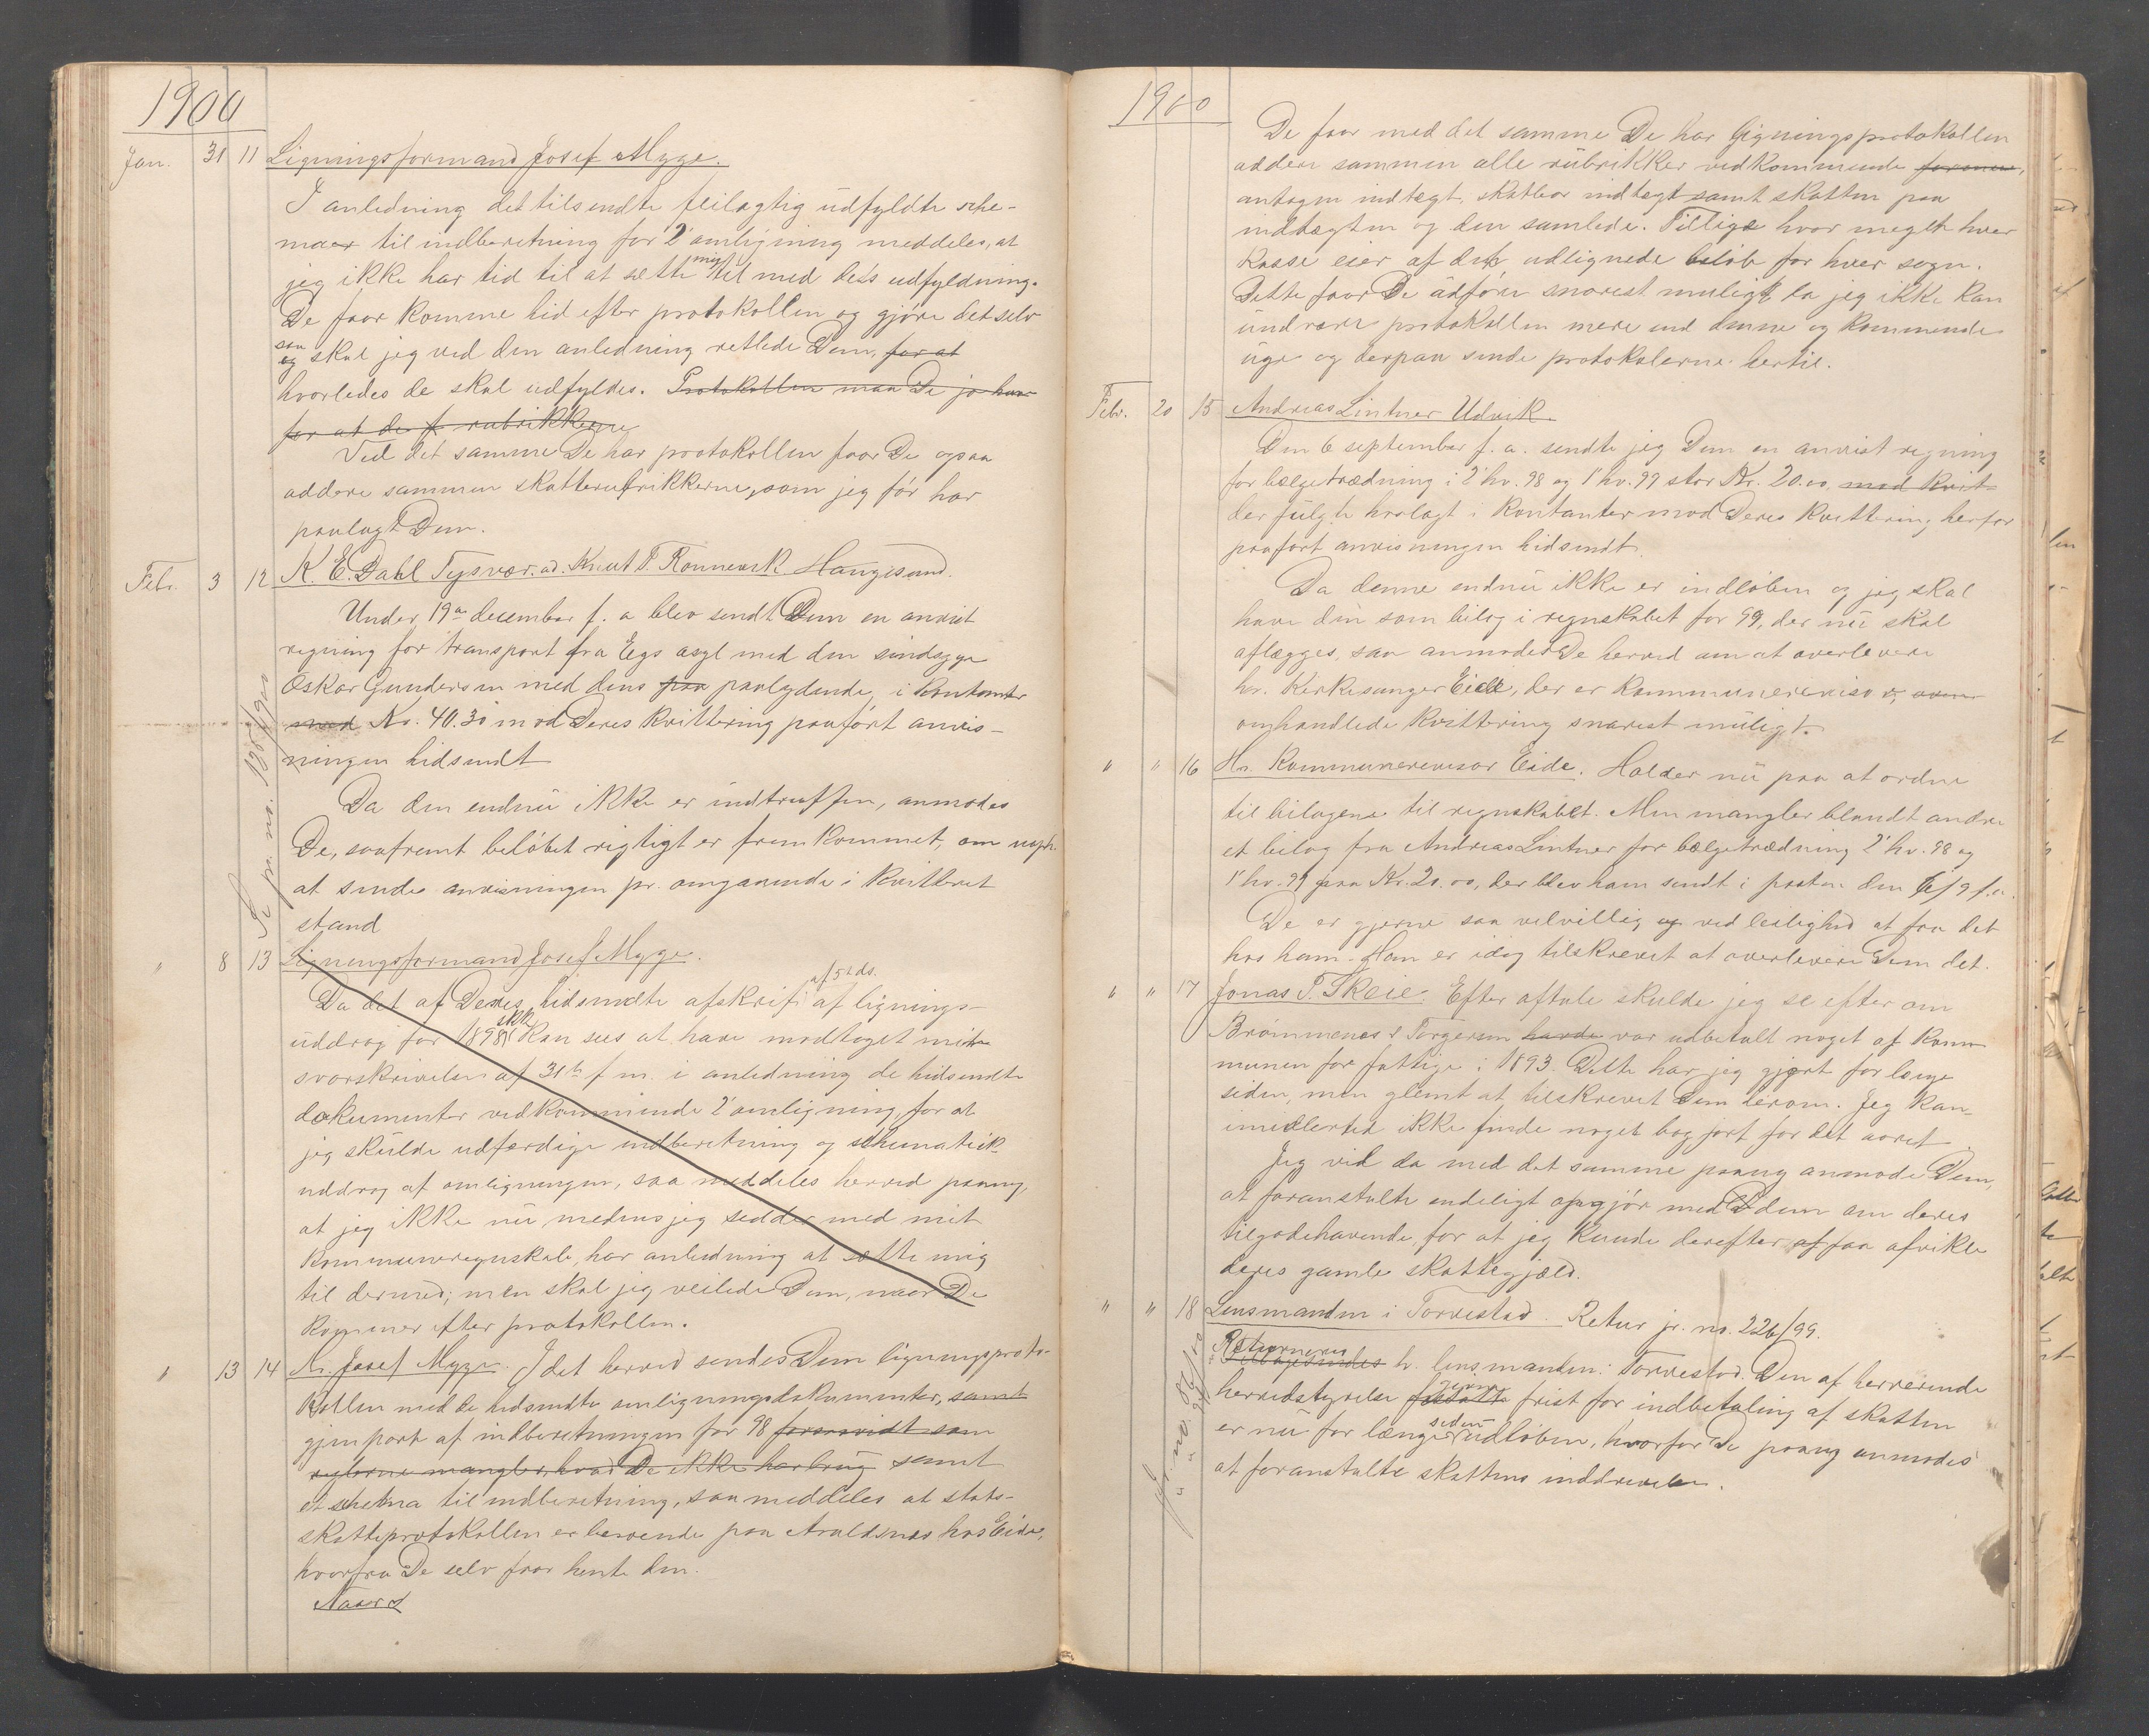 1900
Jan. 31 11 Ligningsformand Josef Myge.
I anledning det tilsendte feilagtig udfyldte sche-
maer til indberetning for 2' omligning meddeles, at
jeg ikke har tid til at sætte mig til med dets udfyldning.
De faar komme hid efter protokollen og gjøre det selv
saa skal jeg ved den anledning retlede Dem, for at
hvorledes de skal udfyldes. Protokollen maa De jo have
for at de f. rubrikkerne
Ved det samme De har protokollen faar De ogsaa
addere sammen skatterubrikkerne, som jeg før har
paalagt Dem.
Febr. 3 12 K. E. Dahl Tysvær. ad. Knut T. Rønnevik Haugesund.
Under 19de december f. a blev sendt Dem en anvist
regning for transport fra Eegs asyl med den sindsyge
Oskar Gundersen med dens paa paalydende, i kontanter
mod Kr. 40.30 mod Deres kvittering paaført anvis-
ningen hidsendt
Da den endnu ikke er indtruffen, anmodes
De, saafremt beløbet rigtigt er fremkommet, om
at sende anvisningen pr. omgaaende i kvitteret
stand
Se jr. no. 135/900
" 8 13 Ligningsformand Josef Myge.
Da det af Deres hidsendte afskrift af 5te ds. af lignings-
uddrag for 1898 skk kan sees at have modtaget min
svarskrivelse af 31te f. m. i anledning de hidsendte
dokumenter vedkommende 2' omligning, for at
jeg skulde udfærdige indberetning og schematisk
uddrag af omligningen, saa meddeles herved paany,
at jeg ikke nu medens jeg sedder med mit
kommuneregnskab, har anledning at sætte mig
til dermed; men skal jeg veilede Dem, naar De
kommer efter protokollen.
" 13 14 Hr. Josef Myge. I det herved sendes Dem ligningsproto-
kollen med de hidsendte omligningsdokumenter, samt
gjenpart af indberetningen for 98 forsaavidt som
mangler, hvad De ikke har brug samt
et schema til indberetning, saa meddeles at stats-
skatteprotokollen er beroende paa Avaldsnes hos Eide,
hvorfra De selv faar hente den.
Naar d
1900
De faar med det samme De har ligningsprotokollen
addere sammen alle rubrikker vedkommende formue,
antagen indtægt, skatbar indtægt samt skatten paa
indtægten og den samlede. Tillige hvor meget hver
kasse eier af det udlignede beløb for hver sogn.
Dette faar De udføre snarest muligt da jeg ikke kan
undvære protokollen mere end denne og kommende
uge og derpaa sende protokolerne hertil.
Febr. 20 15 Andreas Lintner Udvik.
Den 6 september f. a. sendte jeg Dem en anvist regning
for bælgetrædning i 2' hv. 98 og 1' hv. 99 stor Kr. 20.00. mod kvit-
der fulgte hoslagt i kontanter mod Deres kvittering herfor
paaført anvisningen hidsendt.
Da denne endnu ikke er indløben og jeg skal
have den som bilag i regnskabet for 99, der nu skal
aflægges, saa anmodes De herved om at overlevere
hr. Kirkesanger Eide, der er kommunerevisor,
omhandlede kvittering snarest muligt.
" " 16 Hr. Kommunerevisor Eide. Holder nu paa at ordne
til bilagene til regnskabet. Men mangler blandt andre
et bilag fra Andreas Lintner for bælgetrædning 2' hv. 98 og
1' hv. 99 paa Kr. 20.00, der blev ham sendt i posten den 6/9 f.a.
De er gjerne saa velvillig og ved leilighed at faa det
hos ham. Han er idag tilskrevet at overlevere Dem det.
" " 17 Jonas T. Skeie. Efter aftale skulde jeg se efter om
Brommenes & Torgersen havde var udbetalt noget af kom-
munen for fattige i 1893. Dette har jeg gjort for længe
siden, men glemt at tilskrevet Dem herom. Jeg kan
imidlertid ikke finde noget bogført for det aaret.
Jeg vil da med det samme paany anmode Dem,
at foranstalte endeligt opgjør med dem om deres
tilgodehavende, for at jeg kunde derefter af faa afvikle
deres gamle skattegjæld.
" " 18 Lensmanden i Torvestad. Retur jr. no. 226/99.
Returneres
Tilbagesendes hr. lensmanden i Torvestad. Den af herværende
herredstyrelse fastsatte givne frist for indbetaling af skatten
er nu for længe siden udløben, hvorfor De paany anmodes
at foranstalte skattens inddrivelse.